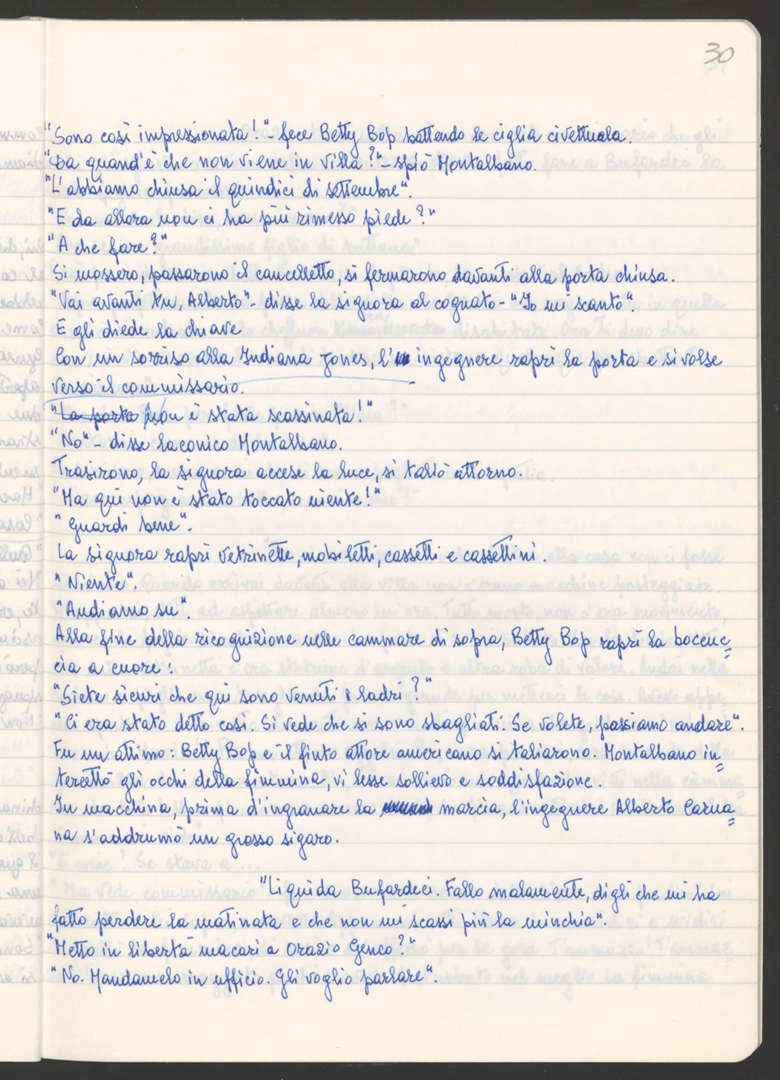 30
"Sono così impressionata!" - fece Betty Bop battendo le ciglia civettuola.
"Da quand'è che non viene in villa?" - spiò Montalbano.
"L'abbiamo chiusa il quindici di settembre".
"E da allora non ci ha più rimesso piede?"
"A che fare?"
Si mossero, passarono il cancelletto, si fermarono davanti alla porta chiusa.
"Vai avanti tu, Alberto" - disse la signora al cognato - "Io mi scanto".
E gli diede la chiave.
Con un sorriso alla Indiana Jones, l' ingegnere raprì la porta e si volse
verso il commissario.
"La porta Non è stata scassinata!"
"No" - disse laconico Montalbano.
Trasirono, la signora accese la luce, si taliò attorno.
"Ma qui non è stato toccato niente!"
"Guardi bene".
La signora raprì vetrinette, mobiletti, cassetti e cassettini.
"Niente".
"Andiamo su".
Alla fine della ricognizione nelle cammare di sopra, Betty Bop raprì la boccuc=
cia a cuore:
"Siete sicuri che qui sono venuti i ladri?"
"Ci era stato detto così. Si vede che si sono sbagliati. Se volete, possiamo andare".
Fu un attimo: Betty Bop e il finto attore americano si taliarono. Montalbano in=
tercettò gli occhi della fimmina, vi lesse sollievo e soddisfazione.
In macchina, prima d'ingranare la marcia, l'ingegnere Alberto Carua=
na s'addrumò un grosso sigaro.
"Liquida Bufardeci. Fallo malamente, digli che mi ha
fatto perdere la matinata e che non mi scassi più la minchia".
"Metto in libertà macari a Orazio Genco?"
"No. Mandamelo in ufficio. Gli voglio parlare".